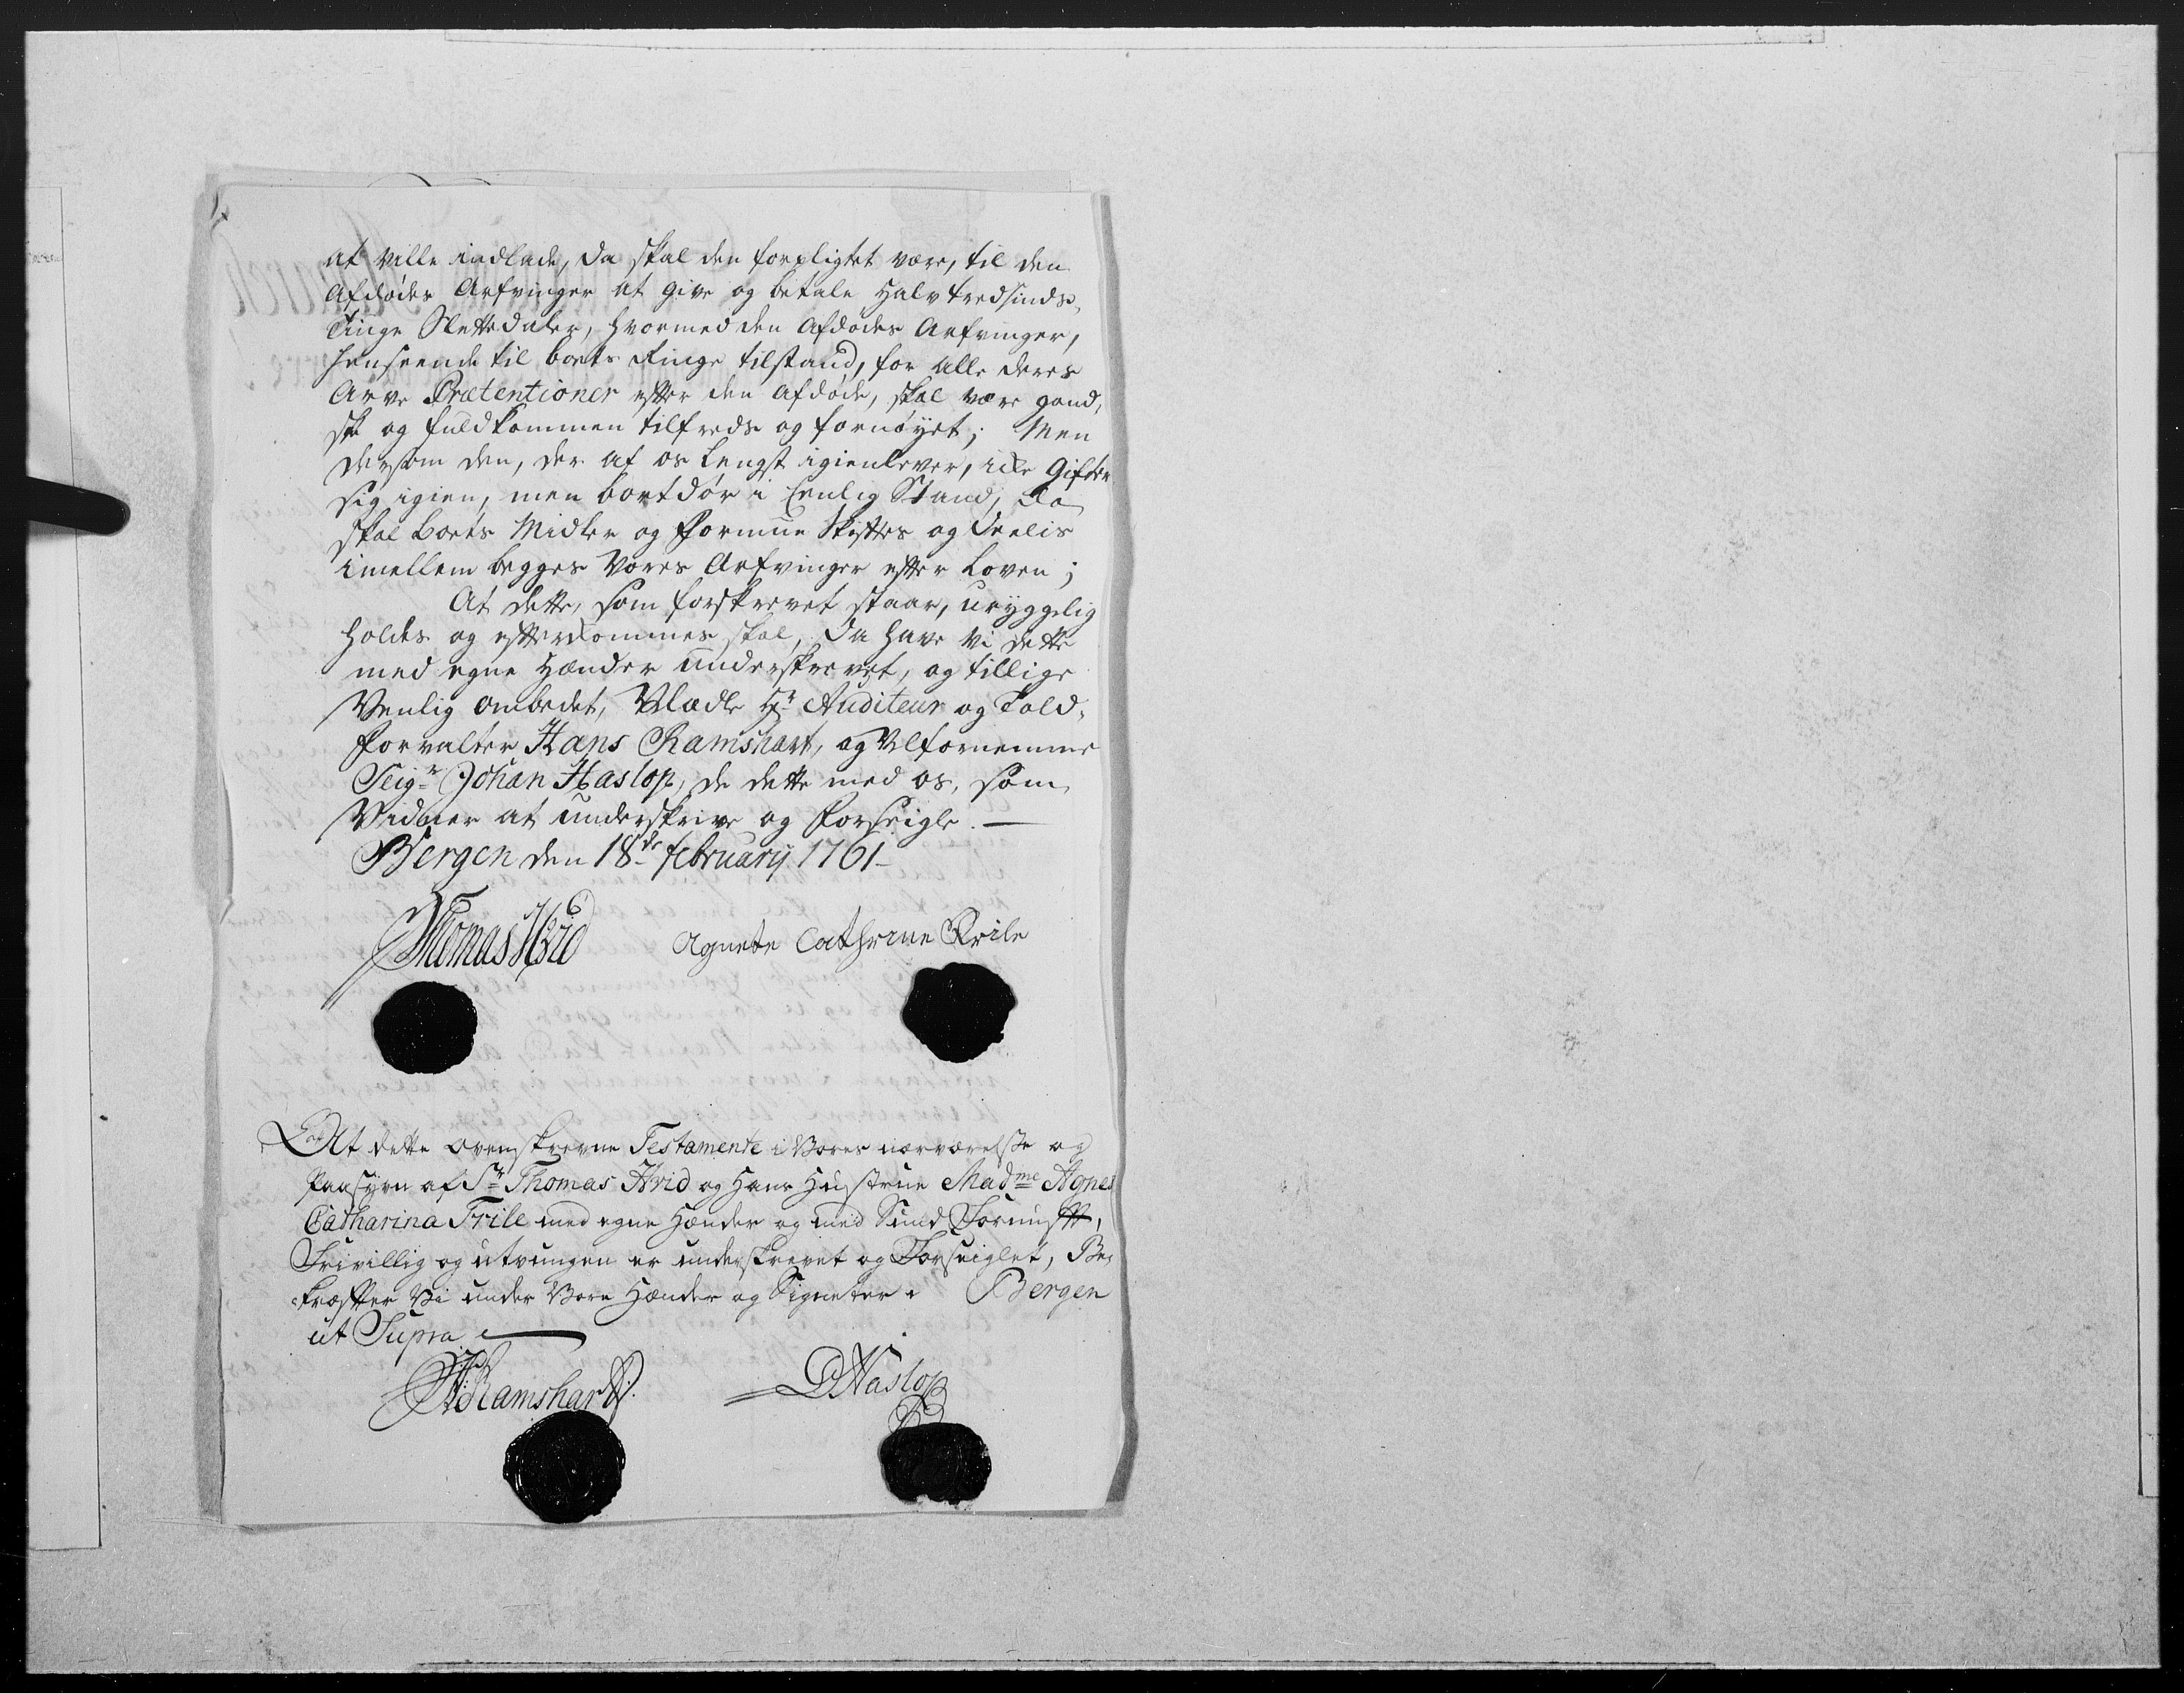 at ville indlade, da skal den forpligtet være, til den
Afdødes Arfvinger at give og betale Halvtredsinds-
tinge Slettedaler, hvormed den Afdødes Arfvinger,
henseende til boets Ringe tilstand, for alle deres
Arve Prætentioner efter den afdøde, skal være gand,
ske og fuldkommen tilfreds og fornøyet; Men
dersom den, der af os Lengst igienlever, icke Gifter
sig igien, men bortdør i Eenlig Stand, da
skal boets Midler og Formue Skiftes og Deelis
imellem begges Vores Arfvinger efter Loven;
At dette, som forskrevet staar, uryggelig
holdes og efterkommes skal, da have vi dette
med egne Hænder underskrevet, og tillige
Venlig ombedet, Vlædle Hr Auditeur og Told-
forvalter Hans Ramshart, og Velfornemme
Seigr Johan Haslop, de dette med os, som
Vidner at underskrive og forseigle. —
Bergen den 18de february 1761-
Thomas Hvid Agnete Cathrine Frile
At dette ovenskrevne Testamente i Vores nærværelse og
Paasyn af Sr Thomas Hvid og Hans Hustrue Madme Agnes
Catharina Frile med egne Hænder og med Sund Fornuft,
Frivillig og utvungen er underskrevet og Forseiglet, Be-
kræfter Vi under Vore Hænder og Signeter. Bergen
ut Supra
H Ramshart. Haslop